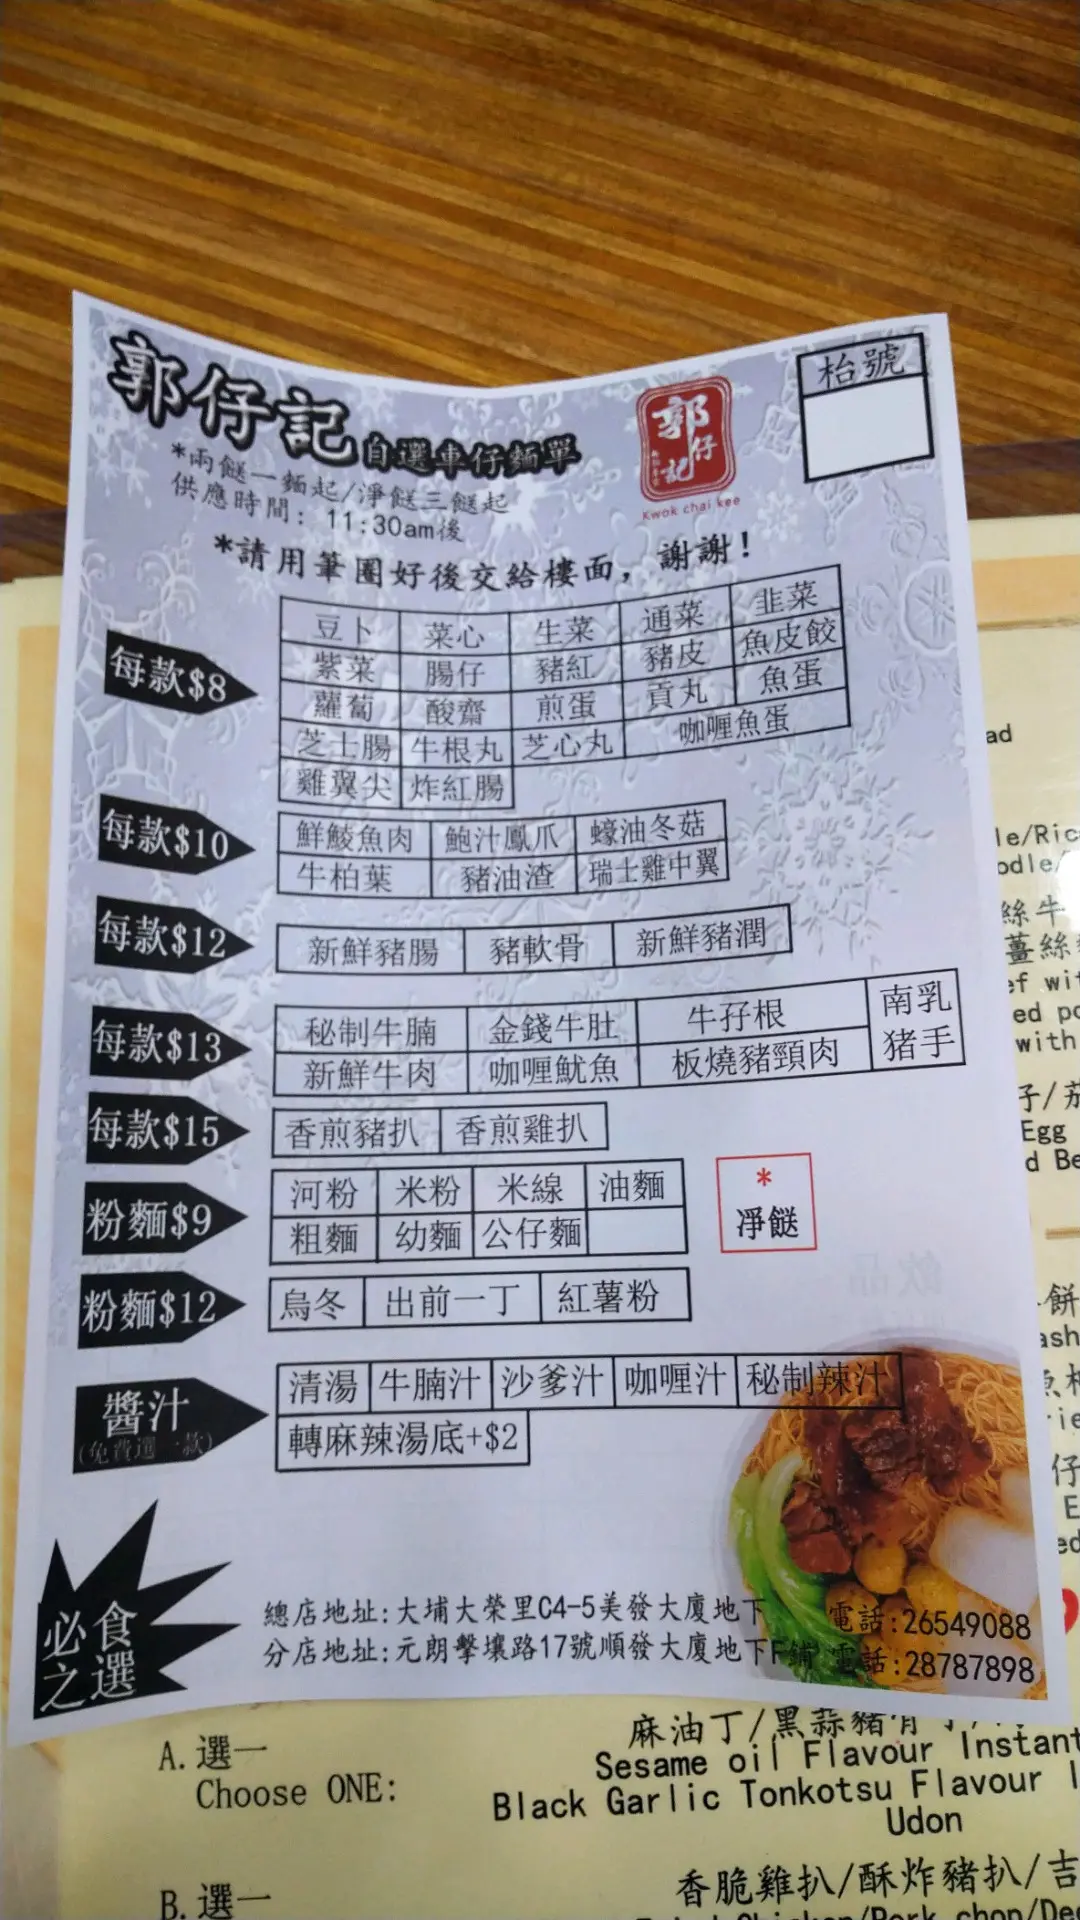 郭仔記自選車仔麵單
郭仔記
Kwok chai kee
枱號
*兩餸一麵起/淨餸三餸起
供應時間: 11:30am後
*請用筆圈好後交給樓面, 謝謝!
每款$8
豆卜 菜心 生菜 通菜 韭菜
紫菜 腸仔 豬紅 豬皮 魚皮餃
蘿蔔 酸齋 煎蛋 貢丸 魚蛋
芝士腸 牛根丸 芝心丸 咖喱魚蛋
雞翼尖 炸紅腸
每款$10
鮮鯪魚肉 鮑汁鳳爪 蠔油冬菇
牛柏葉 豬油渣 瑞士雞中翼
每款$12
新鮮豬腸 豬軟骨 新鮮豬潤
每款$13
秘制牛腩 金錢牛肚 牛孖根 南乳
新鮮牛肉 咖喱魷魚 板燒豬頸肉 猪手
每款$15
香煎豬扒 香煎雞扒
粉麵$9
河粉 米粉 米線 油麵
粗麵 幼麵 公仔麵
*
凈餸
粉麵$12
烏冬 出前一丁 紅薯粉
醬汁
(免費選一款)
清湯 牛腩汁 沙爹汁 咖喱汁 秘制辣汁
轉麻辣湯底+$2
必食
之選
總店地址:大埔大榮里C4-5美發大廈地下 電話:26549088
分店地址:元朗擊壤路17號順發大廈地下F鋪 電話:28787898
ad
le/Ric
odle/
絲牛
薑絲
ef wit
ed po
with
子/茄
Egg
d Be
餅
ash
rie
仔
E
ed
A. 選一
Choose ONE:
麻油丁/黑蒜豬骨
Sesame oil Flavour Instant
Black Garlic Tonkotsu Flavour I
Udon
B. 選一
香脆雞扒/酥炸豬扒/吉
Chicken/Pork chop/Dee